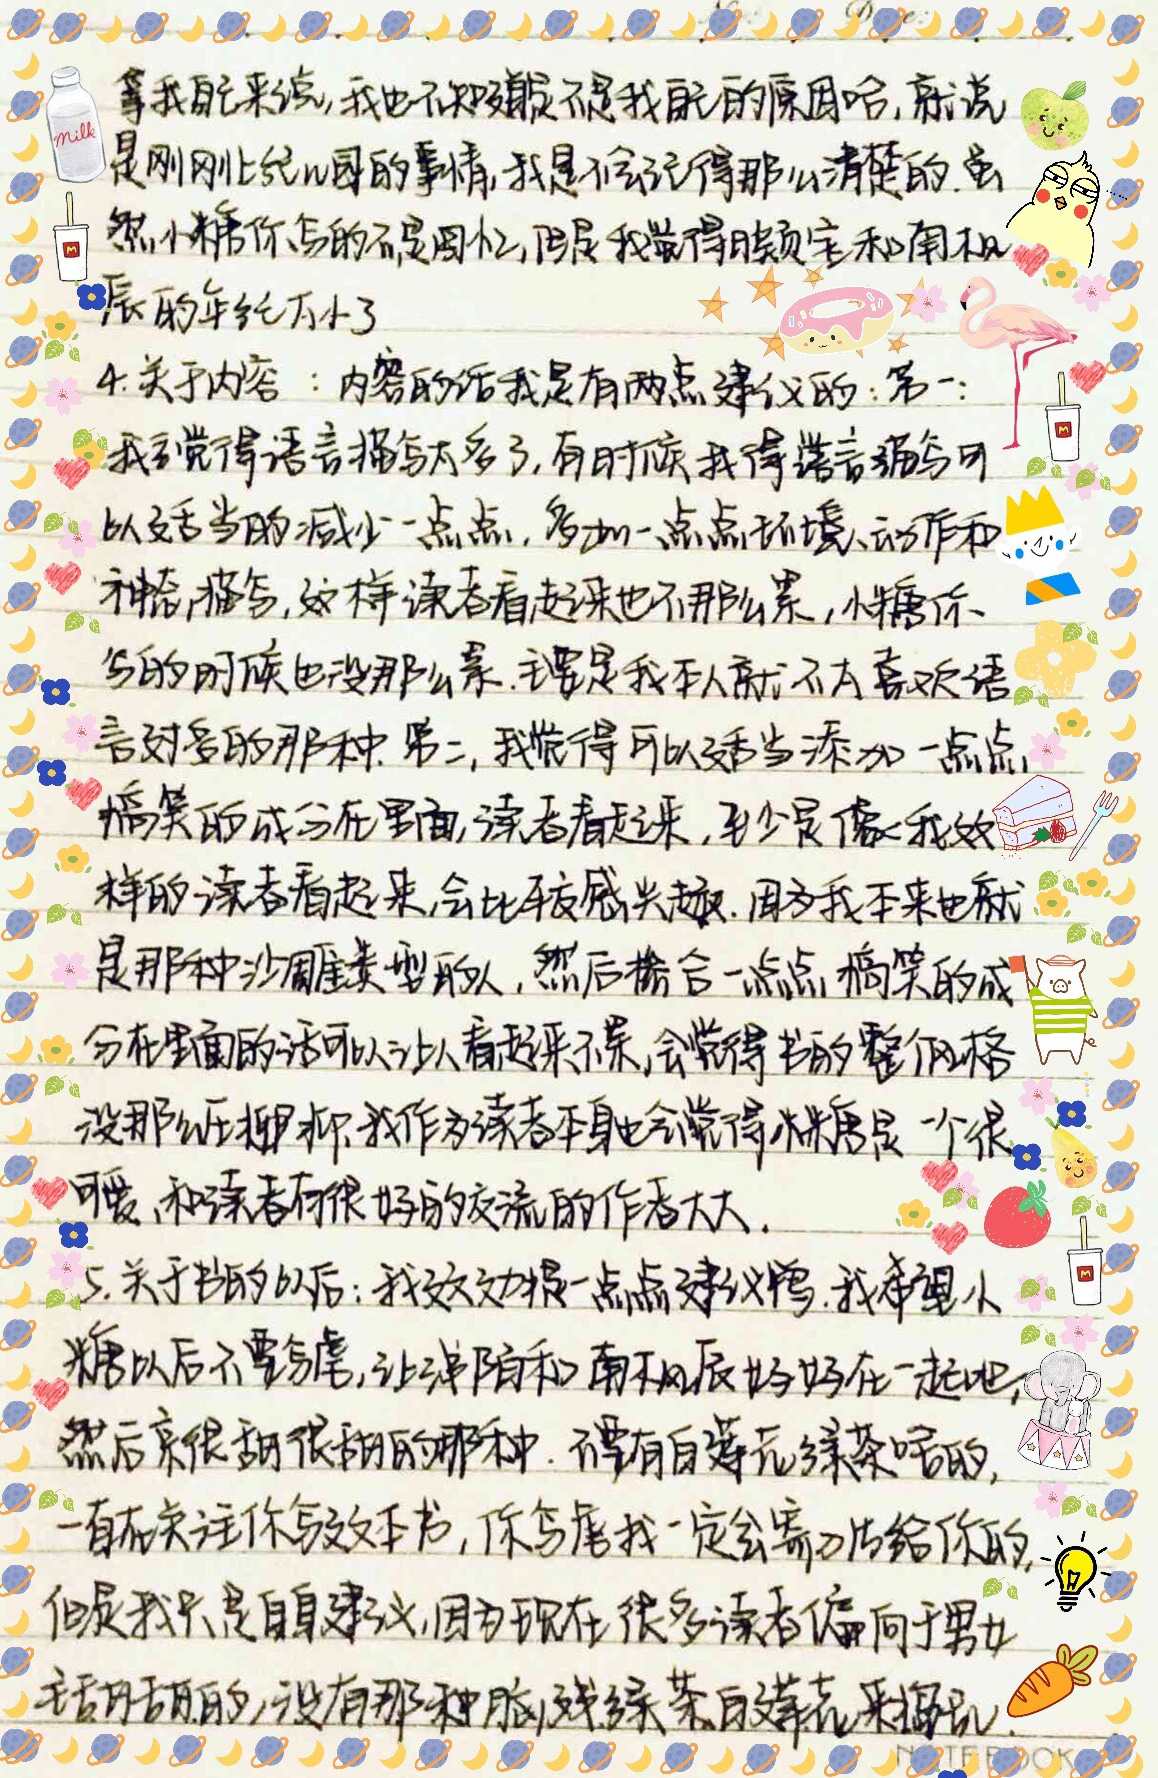 No: Date:
Milk
拿我自己来说,我也不知道是不是我自己的原因哈,就说
是刚刚上幼儿园的事情,我是不会记得那么清楚的.虽
然小糖你写的不是回忆,但是我觉得和南枫
辰的年纪太小了
4.关于内容:内容的话我是有两点建议的:第一:
我觉得语言描写太多了,有时候我觉得语言描写可
以适当的减少一点点,多加一点点环境、动作和
神态描写,这样读者看起来也不那么累,小糖你、
写的时候也没那么累.主要是我本人就不太喜欢语
言对多的那种.第二,我觉得可以适当添加一点点
搞笑的成分在里面,读者看起来,至少是像我这
样的读者看起来,会比较感兴趣.因为我本来也就
是那种沙雕类型的人,然后揉合一点点搞笑的成
分在里面的话可以让人看起来不累,会觉得书的整个风格
没那么压抑.我作为读者本身也会觉得小糖是一个很
可爱、和读者有很好的交流的作者大大.
5.关于书的以后:我这边提一点点建议鸭.我希望小
糖以后不要写虐,让陌和南枫辰好好在一起吧,
然后亲很甜很甜的那种.不要有白莲花绿茶啥的,
一直在关注你写这本书,你写虐我一定会寄刀片给你的,
但是我只是自身建议,因为现在很多读者偏向于男女
主甜甜的,没有那种脑残绿茶白莲花来捣乱.
NOTEBOOK